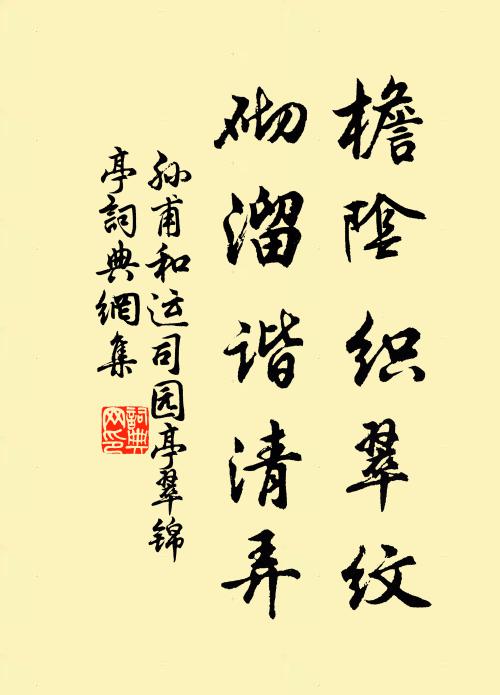 檐陰织翠纹
砌溜谐清弄
孙甫和运司园亭翠锦
亭詞典網集
詞典
网印